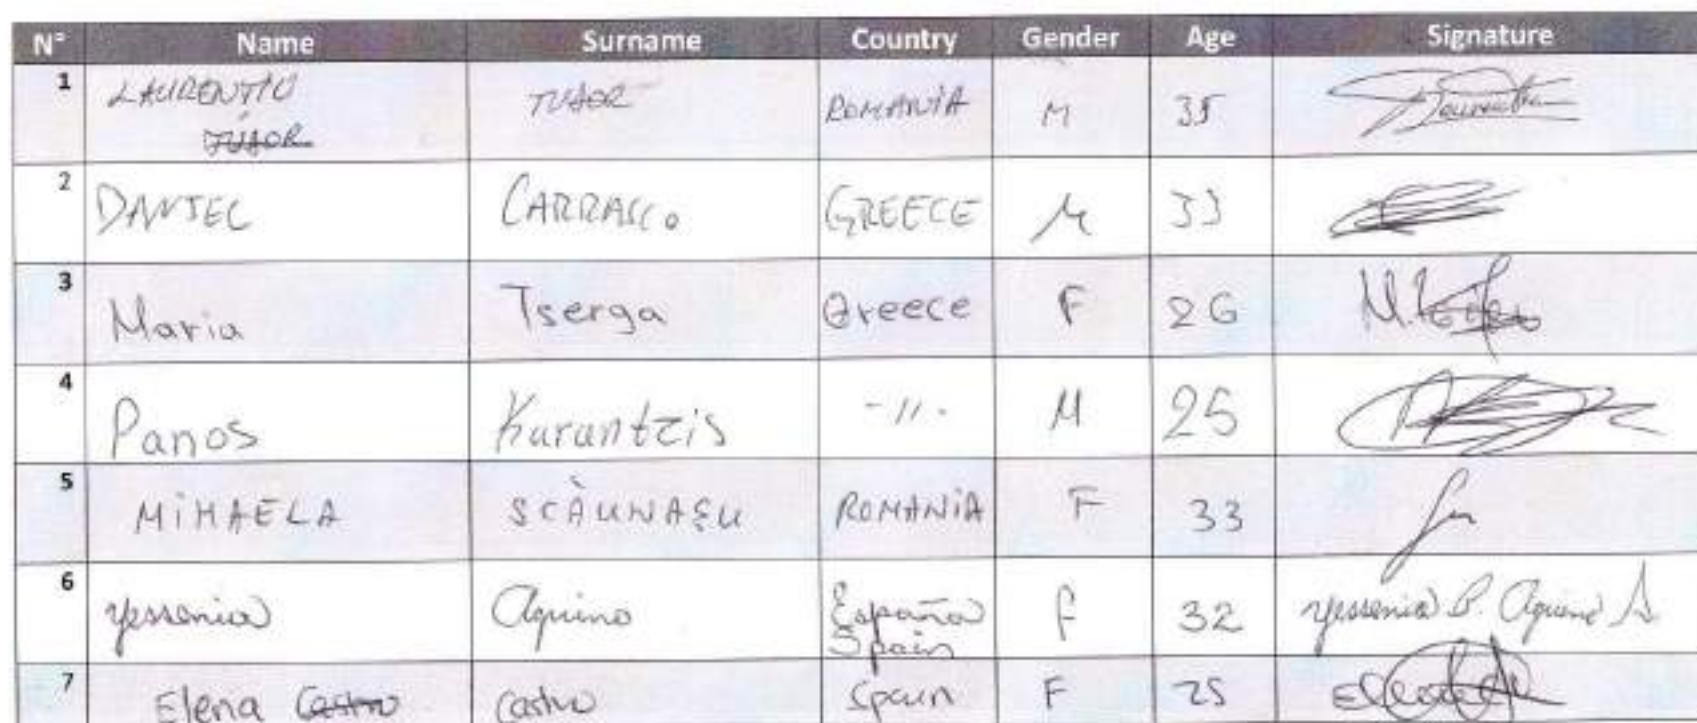 N° Name Surname Country Gender Age Signature
1 LAURENTIU TUDOR ROMANIA M 35
TUDOR
2 DANIEL CARRASCO GREECE M 33
3 Maria Tserga Greece F 26
4 Panos Karantzis -//- M 25
5 MIHAELA SCĂUNAȘU ROMANIA F 33
6 Yessenia Aquino España F 32 Yessenia P. Aquino A.
Spain
7 Elena Castro Castro Spain F 25